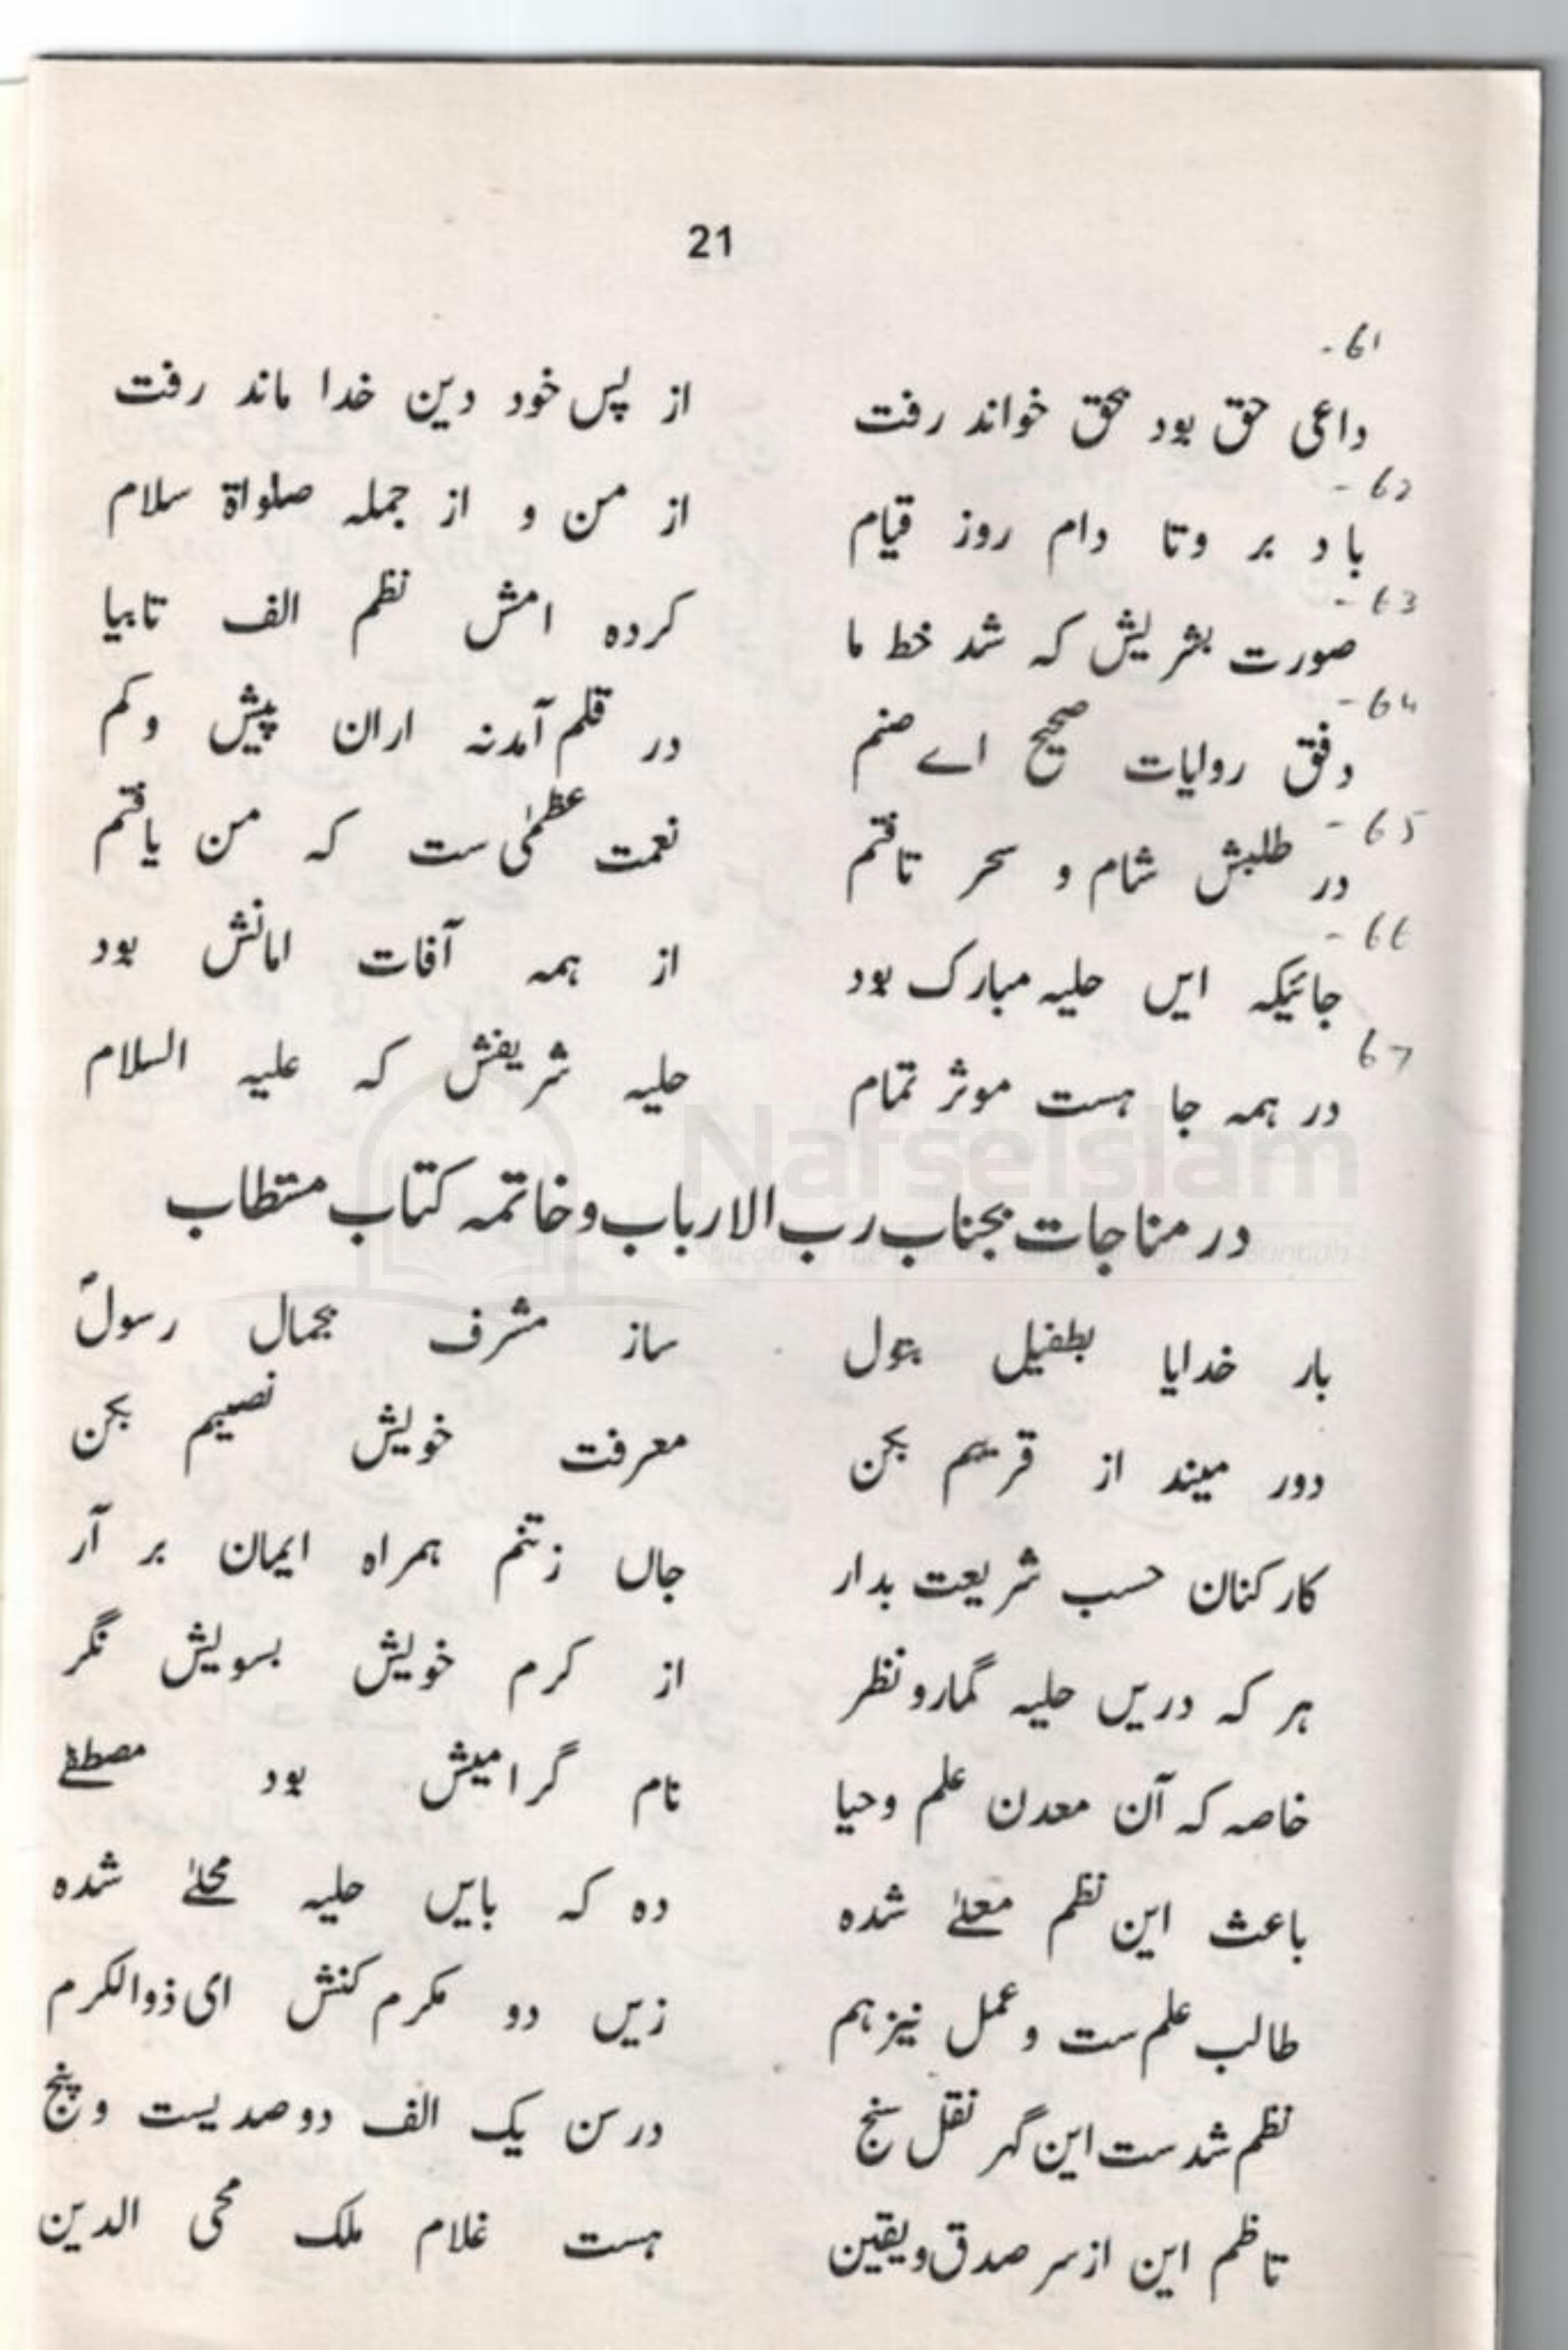 21
61-
داعی حق بود بحق خواند رفت از پس خود دین خدا ماند رفت
62-
باد بر وتا دام روز قیام از من و از جملہ صلواۃ سلام
63-
صورت بشریش کہ شد خط ما کردہ امش نظم الف تابیا
64-
وفق روایات صحیح اے صنم در قلم آمدنہ اران پیش وکم
65-
در طلبش شام و سحر تافتم نعمت عظمٰی ست کہ من یافتم
66-
جائیکہ ایں حلیہ مبارک بود از ہمہ آفات امانش بود
67
در ہمہ جا ہست موثر تمام حلیہ شریفش کہ علیہ السلام
در مناجات بجناب رب الارباب وخاتمہ کتاب مستطاب
بار خدایا بطفیل بتول ساز مشرف بجمال رسولؐ
دور میند از قریبم بکن معرفت خویش نصیبم بکن
کارکنان حسب شریعت بدار جاں زتنم ہمراہ ایمان بر آر
ہر کہ دریں حلیہ گمارو نظر از کرم خویش بسویش نگر
خاصہ کہ آن معدن علم وحیا نام گرامیش بود مصطفےٰ
باعث این نظم معلےٰ شدہ دہ کہ بایں حلیہ محلےٰ شدہ
طالب علم ست وعمل نیز ہم زیں دو مکرم کنش ای ذوالکرم
نظم شدست این گہر نقل سنج در سن یک الف دو صد یست وپنج
ناظم این از سر صدق ویقین ہست غلام ملک محی الدین
NafseIslam